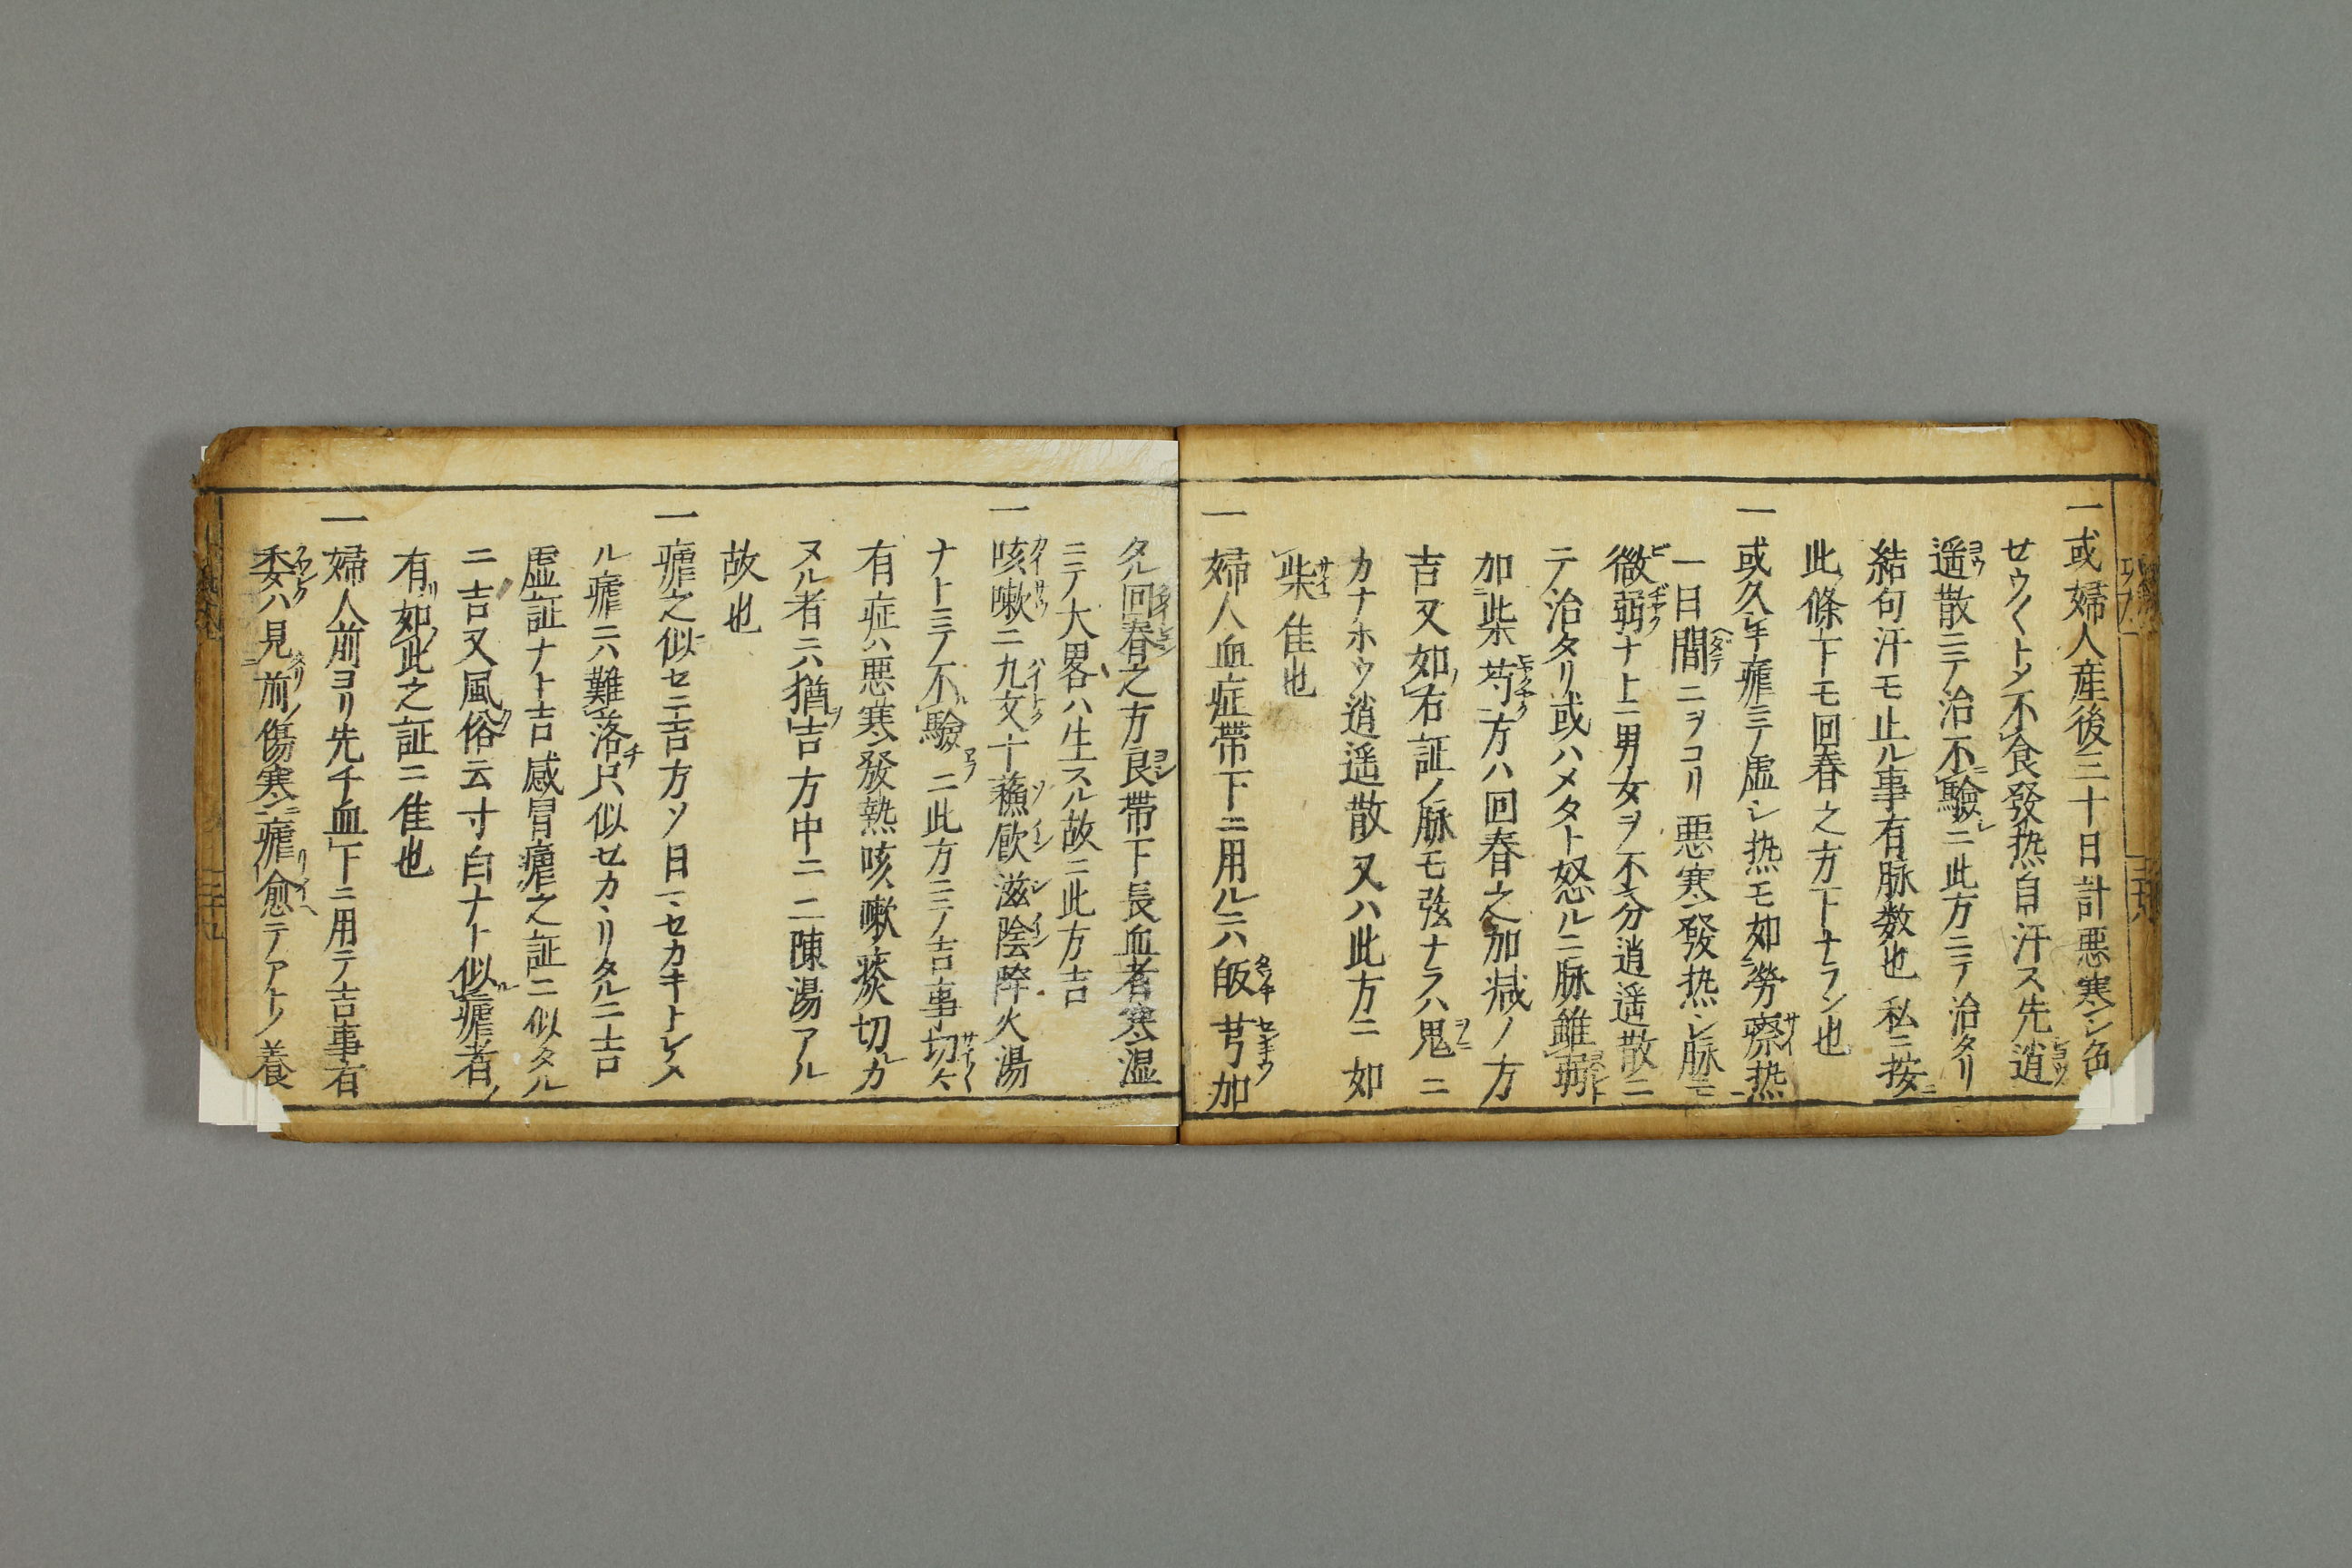 一或婦人産後三十日計悪寒シ色
セウ〱トメ不食發热自汗ス先逍
遥散ニテ治不驗ニ此方ニテ治タリ
結句汗モ止ル事有脉数也私ニ按
此條下モ回春之方下ナラン也
一或久年瘧ニテ虚シ热モ如勞瘵热
一日間ニヲコリ悪寒發热シ脉モ
微弱ナト上ニ男女ヲ不分逍遥散ニ
テ治タリ或ハメタト怒ルニ脉雖弱
加柴芍方ハ回春之加减ノ方
吉又如右証ノ脉モ弦ナラハ鬼ニ
カナホウ逍遥散又ハ此方ニ如
柴佳也
一婦人血症帶下ニ用ルニハ皈芎加
タル回春之方良帶下長血者寒湿
ニテ大畧ハ生スル故ニ此方吉
一咳嗽ニ九文十蘓飲滋陰降火湯
ナトニテノ不驗ニ此方ニテノ吉事切々
有症ハ悪寒發熱咳嗽痰切ルカ
ヌル者ニハ猶吉方中ニ二陳湯アル
故也
一瘧之似セニ吉方ソ日マセカキトレヘ
ル瘧ニハ難落只似セカヽリタルニ吉
虚証ナト吉感冒瘧之証ニ似タル
ニ吉又風俗云寸白ナト似瘧者ノ
有如此之証ニ佳也
一婦人前ヨリ先千血下ニ用テ吉事有
委ハ見前傷寒瘧愈テアトノ養